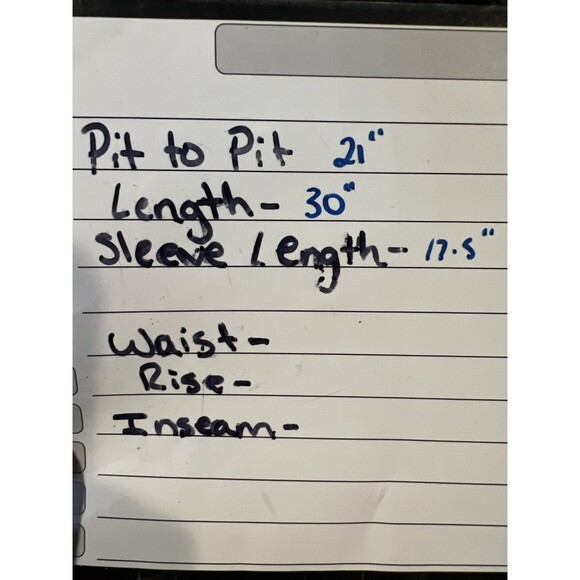 Pit to Pit 21"
Length - 30"
Sleeve Length - 17.5"
Waist -
Rise -
Inseam -